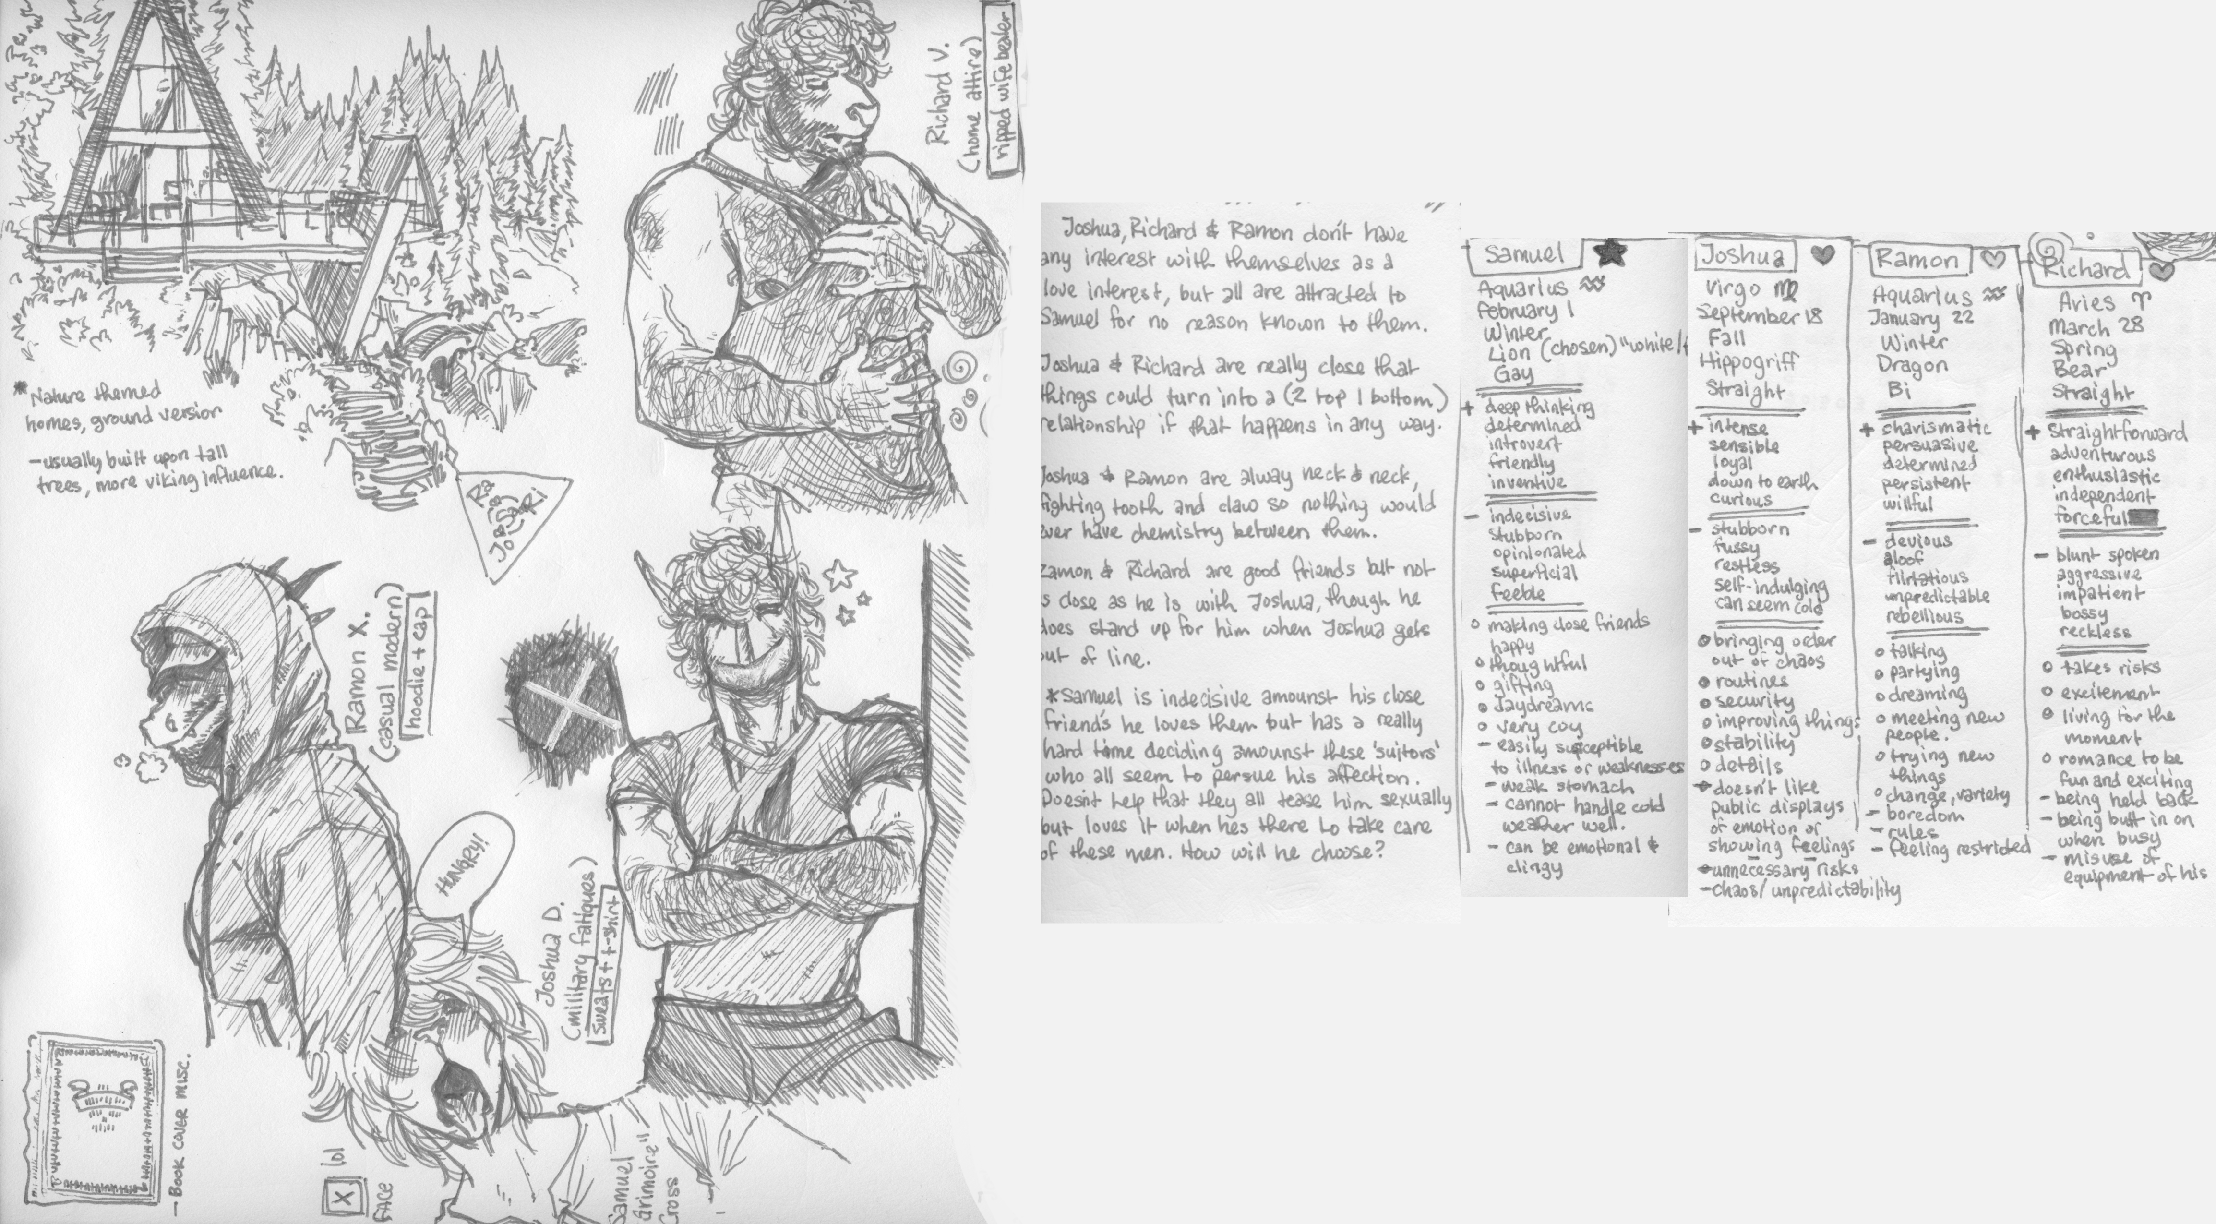 *Nature themed
homes, ground version
-usually built upon tall
trees, more viking influence.
Richard V.
(home attire)
ripped wife beater
Ra
Jo
Ri
Ramon X.
(casual modern)
hoodie + cap
HUNGRY!!
Joshua D.
(military fatigues)
sweats + t-shirt
- Book cover misc.
X
lol
face
Samuel
Grimoire"
Cross
Joshua, Richard & Ramon don't have
any interest with themselves as a
love interest, but all are attracted to
Samuel for no reason known to them.
Joshua & Richard are really close that
things could turn into a (2 top 1 bottom)
relationship if that happens in any way.
Joshua & Ramon are alway neck & neck,
fighting tooth and claw so nothing would
ever have chemistry between them.
Ramon & Richard are good friends but not
as close as he is with Joshua, though he
does stand up for him when Joshua gets
out of line.
*Samuel is indecisive amounst his close
friends he loves them but has a really
hard time deciding amounst these 'suitors'
who all seem to persue his affection.
Doesn't help that they all tease him sexually
but loves it when hes there to take care
of these men. How will he choose?
Samuel
Aquarius
February 1
Winter
Lion (chosen) "white/
Gay
+ deep thinking
determined
introvert
friendly
inventive
- indecisive
stubborn
opinionated
superficial
feeble
o making close friends
happy
o thoughtful
o gifting
o daydreams
o very coy
- easily susceptible
to illness or weaknesses
- weak stomach
- cannot handle cold
weather well.
- can be emotional &
clingy
Joshua
Virgo
September 18
Fall
Hippogriff
Straight
+ intense
sensible
loyal
down to earth
curious
- stubborn
fussy
restless
self-indulging
can seem cold
o bringing order
out of chaos
o routines
o security
o improving things
o stability
o details
- doesn't like
public displays
of emotion or
showing feelings
- unnecessary risks
- chaos/unpredictability
Ramon
Aquarius
January 22
Winter
Dragon
Bi
+ charismatic
persuasive
determined
persistent
willful
- devious
aloof
flirtatious
unpredictable
rebellious
o talking
o partying
o dreaming
o meeting new
people.
o trying new
things
o change, variety
- boredom
- rules
- feeling restricted
Richard
Aries
March 28
Spring
Bear
Straight
+ Straightforward
adventurous
enthusiastic
independent
forceful
- blunt spoken
aggressive
impatient
bossy
reckless
o takes risks
o excitement
o living for the
moment
o romance to be
fun and exciting
- being held back
- being butt in on
when busy
- misuse of
equipment of his